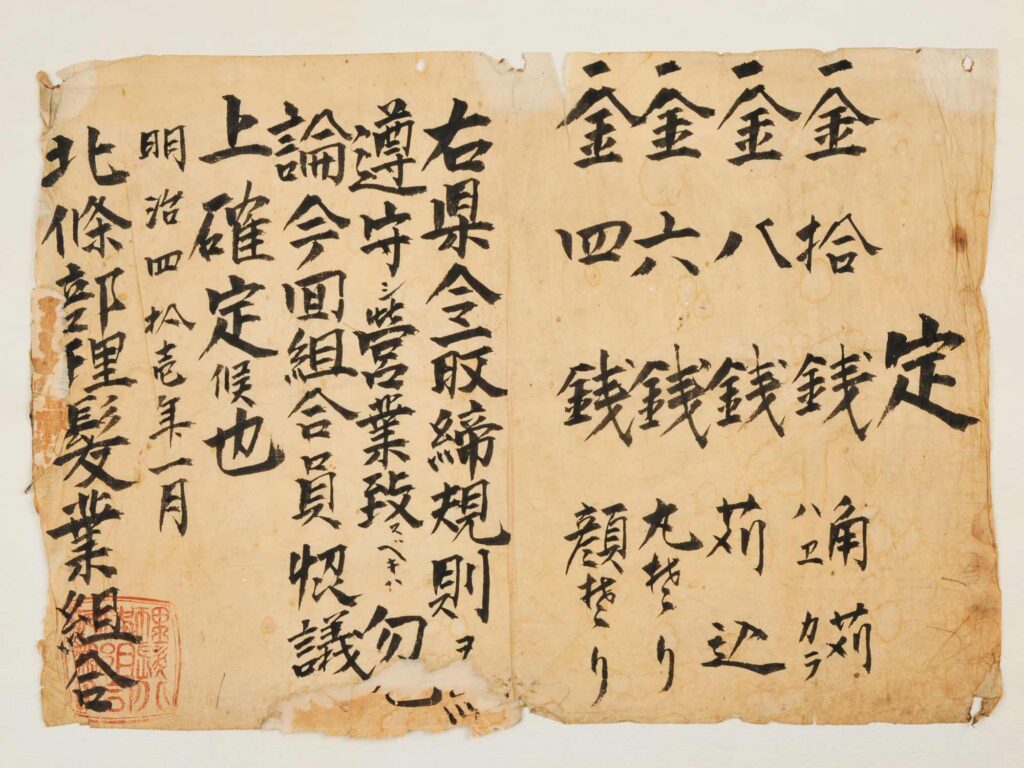 定
一金拾銭 角刈
ハヱカラ
一金八銭 刈込
一金六銭 丸そり
一金四銭 顔そり
右県令取締規則ヲ
遵守シ営業致スベキハ勿
論今回組合員恊議
上確定候也
明治四拾壱年一月
北條部理髪業組合